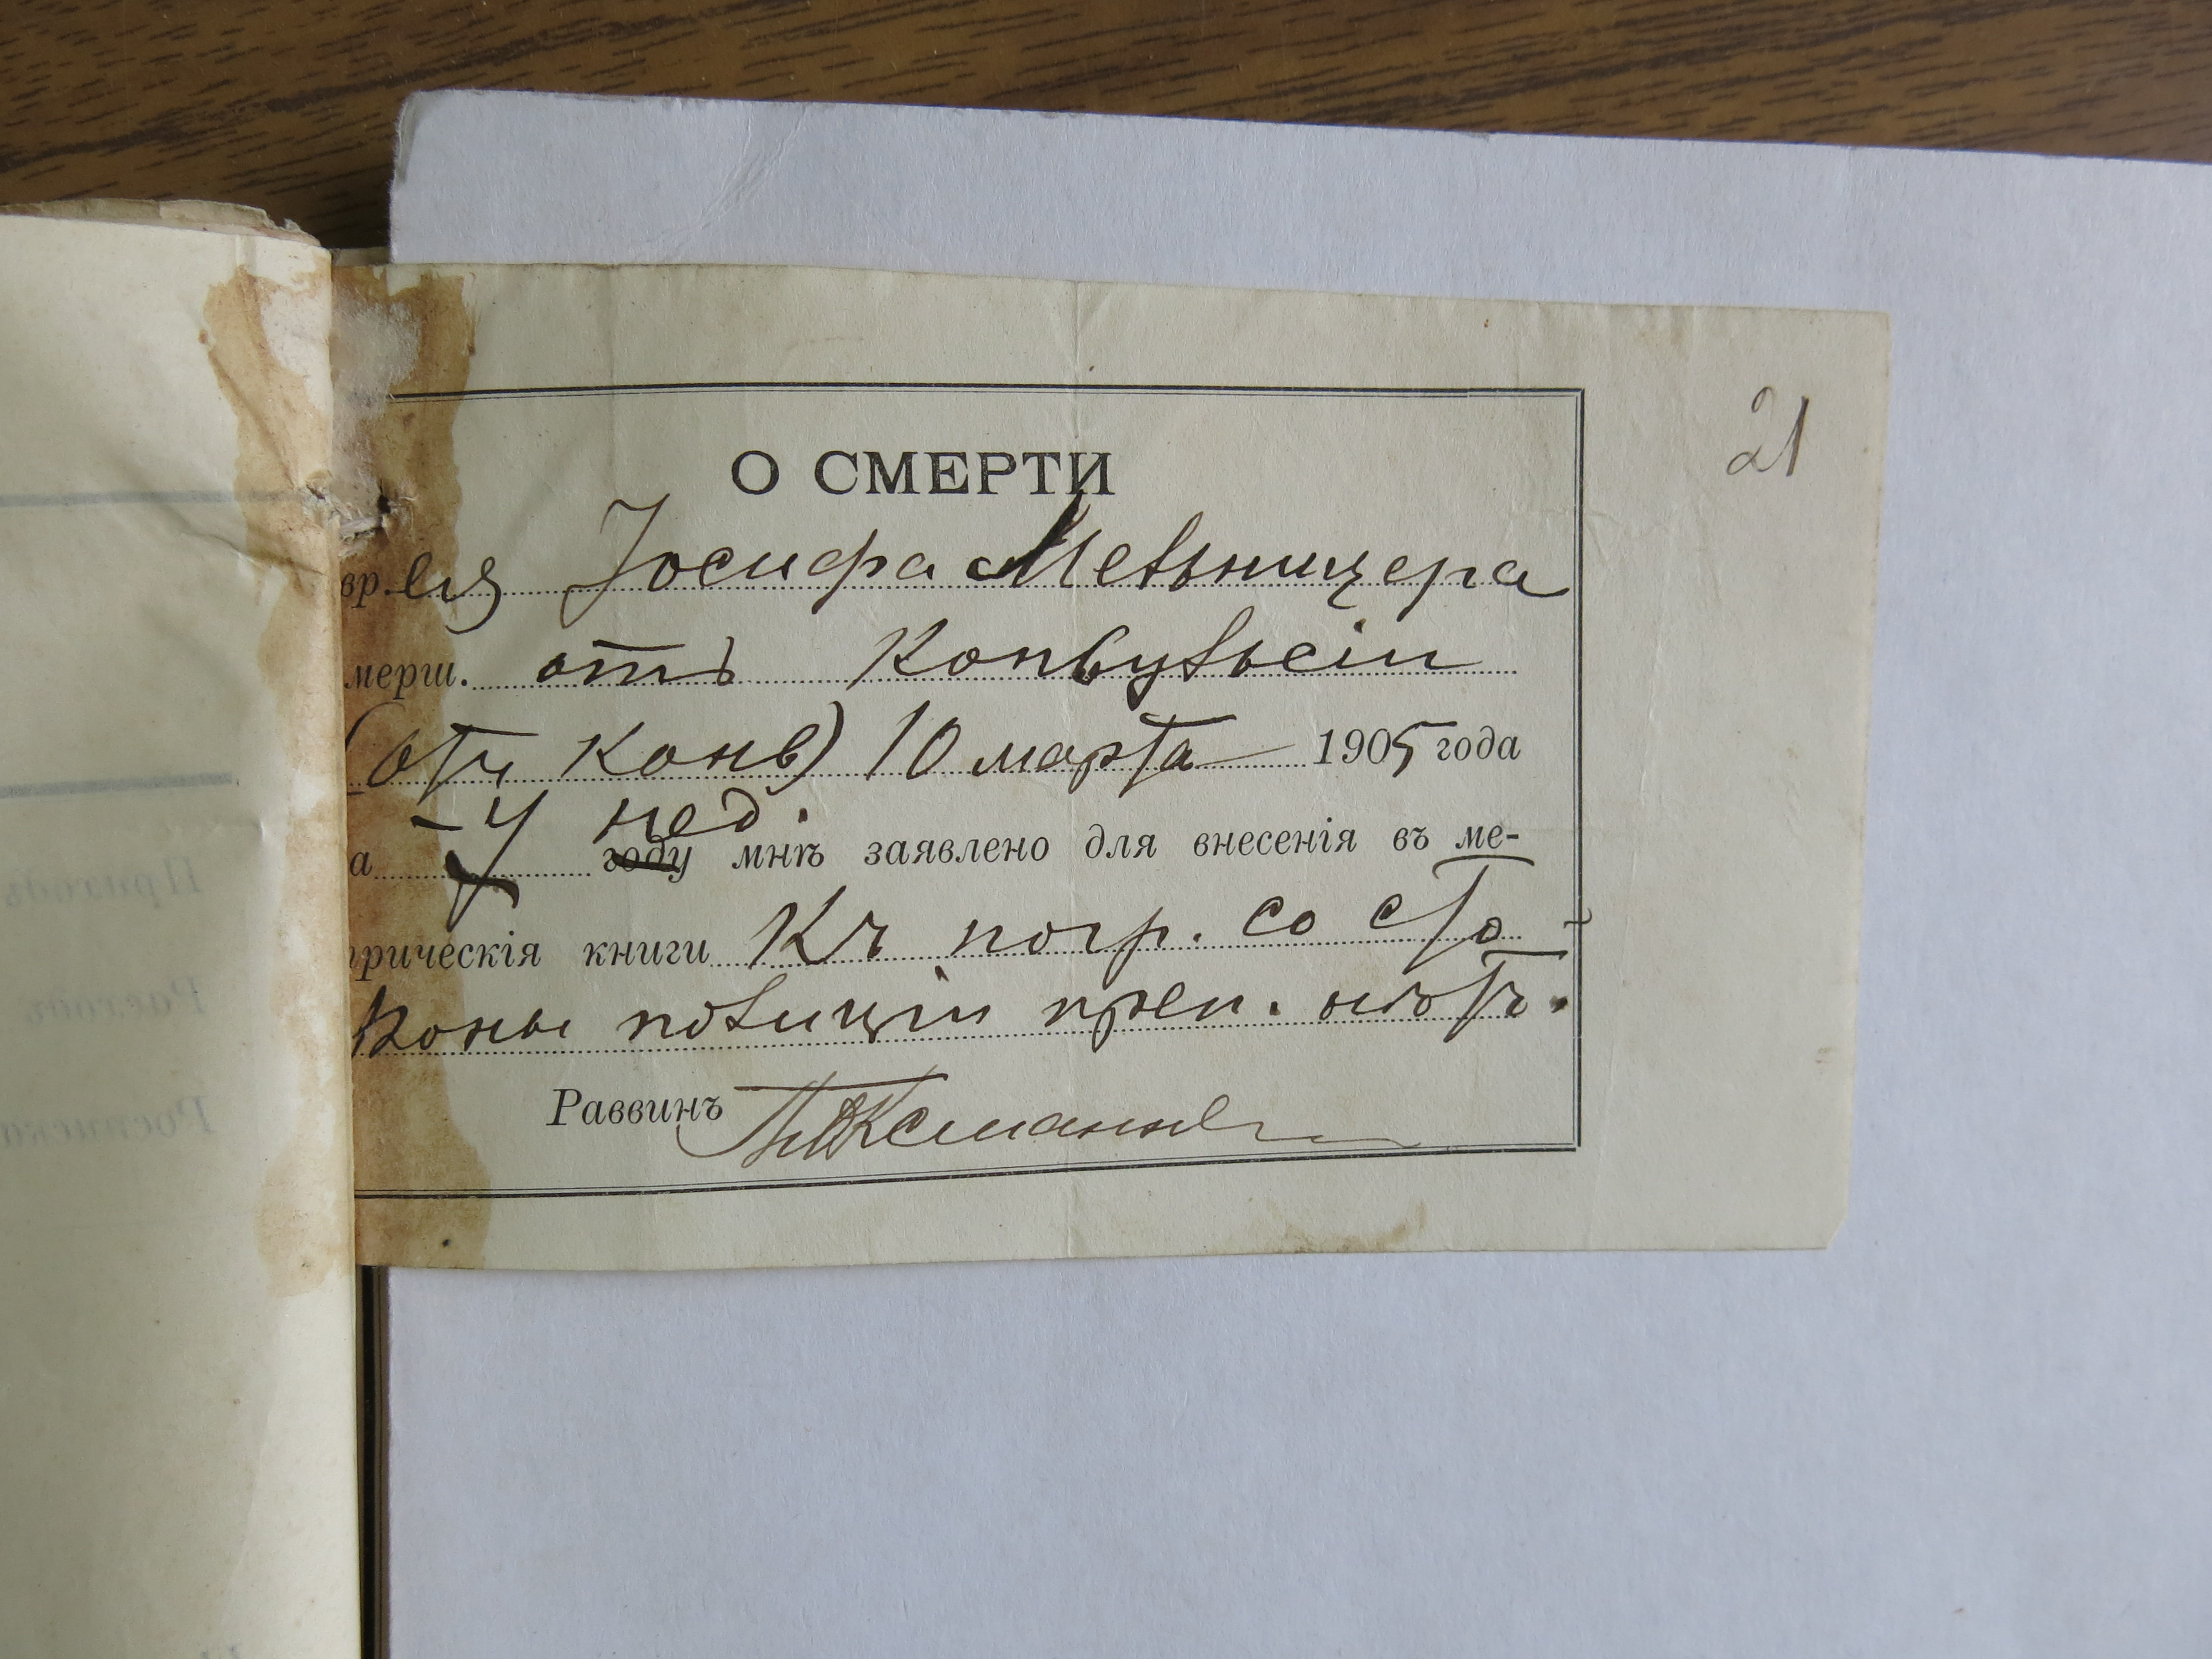 21
О СМЕРТИ
вр. ея Іосифа Мельницера
мерш. отъ Конвульсіи
(отъ конв) 10 марта 1905 года
- 4 нед.
а году мнѣ заявлено для внесенія въ ме-
рическія книги Къ погр. со сто-
роны полиціи преп. нѣтъ.
Раввинъ